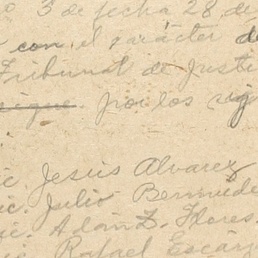 o 3 de fecha 28 de
con el carácter de
Tribunal de Justi
por los sig
ic. Jesús Alvarez
ic. Julio Bermude
ic. Adan Z. Flores.
ic. Rafael Escár